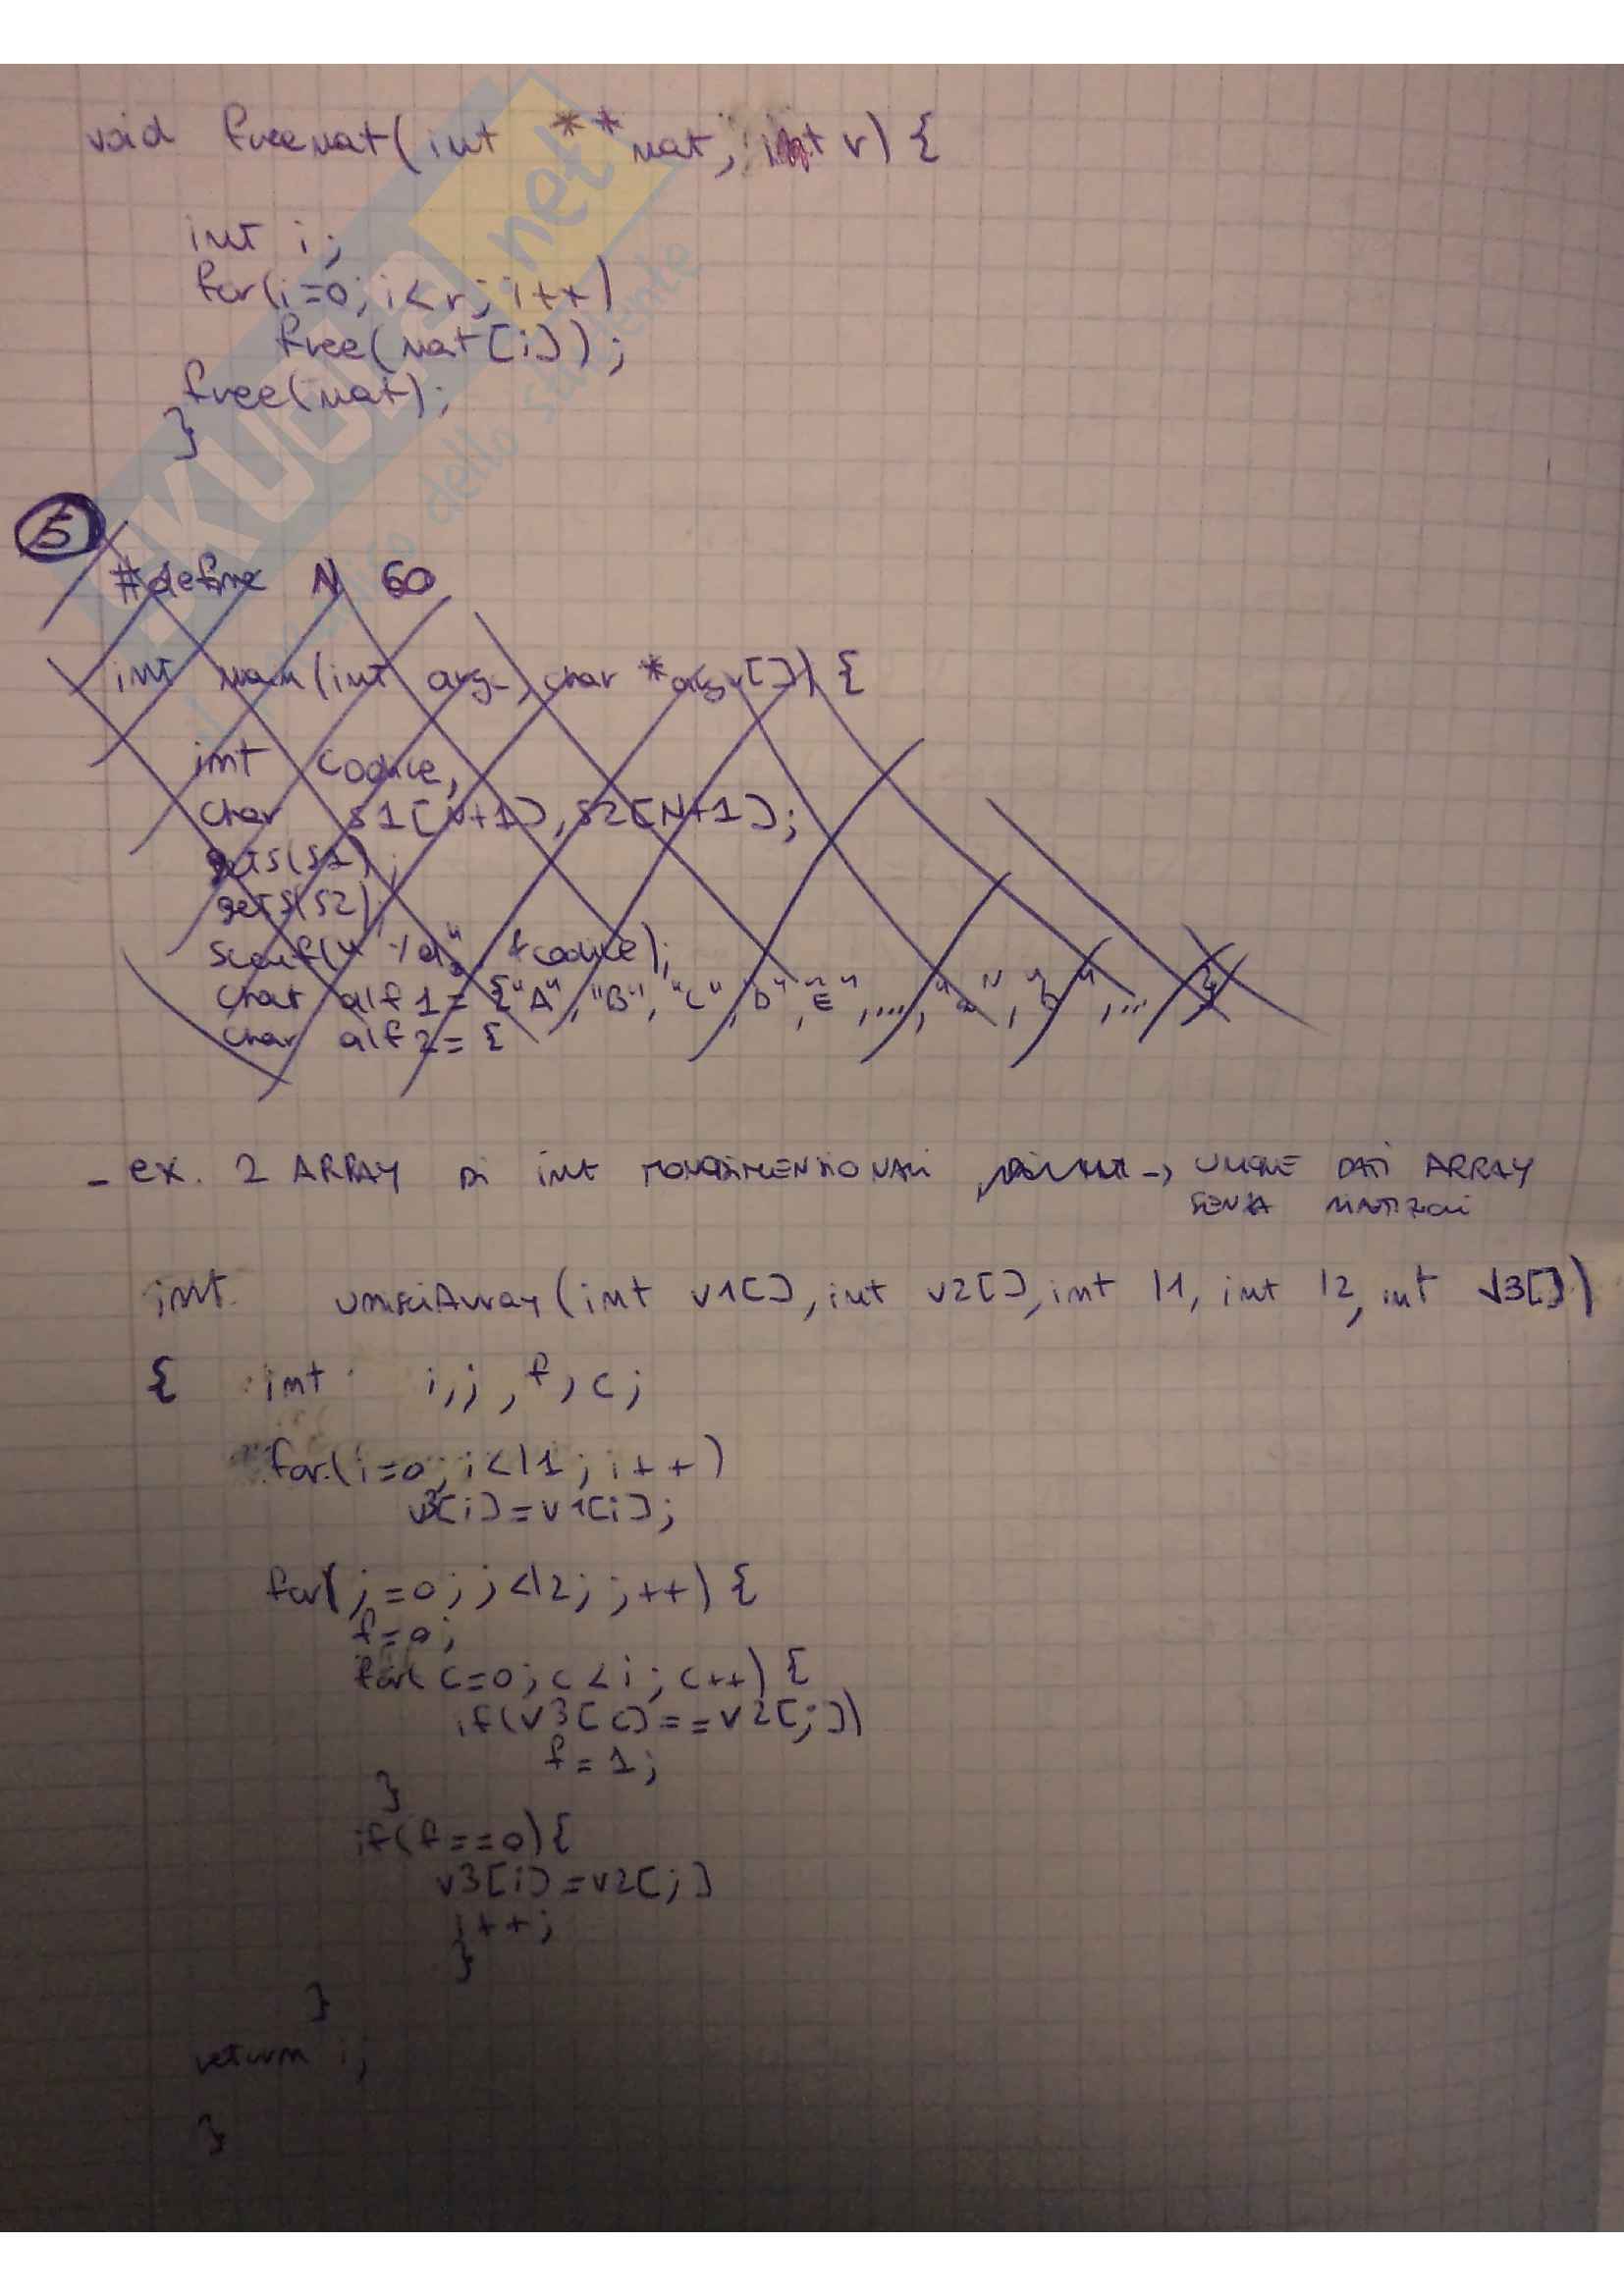 void freemat(int **mat, int r) {
int i;
for(i=0; i<r; i++)
free(mat[i]);
free(mat);
}
5
#define N 60
int main(int argc, char *argv[]) {
int codice;
char s1[N+1], s2[N+1];
gets(s1);
gets(s2);
scanf("%d", &codice);
char alf1 = {"A", "B", "C", "D", "E", ..., "a", "b", ... }
char alf2 = {
- ex. 2 ARRAY DI INT MONODIMENSIONALI → UNIONE DATI ARRAY
SENZA
int unisciArray(int v1[], int v2[], int l1, int l2, int v3[])
{ int i, j, f, c;
for(i=0; i<l1; i++)
v3[i]=v1[i];
for(j=0; j<l2; j++) {
f=0;
for(c=0; c<i; c++) {
if(v3[c]==v2[j])
f=1;
}
if(f==0){
v3[i]=v2[j]
i++;
}
}
return i;
}
SKUOLA.net
dello studente